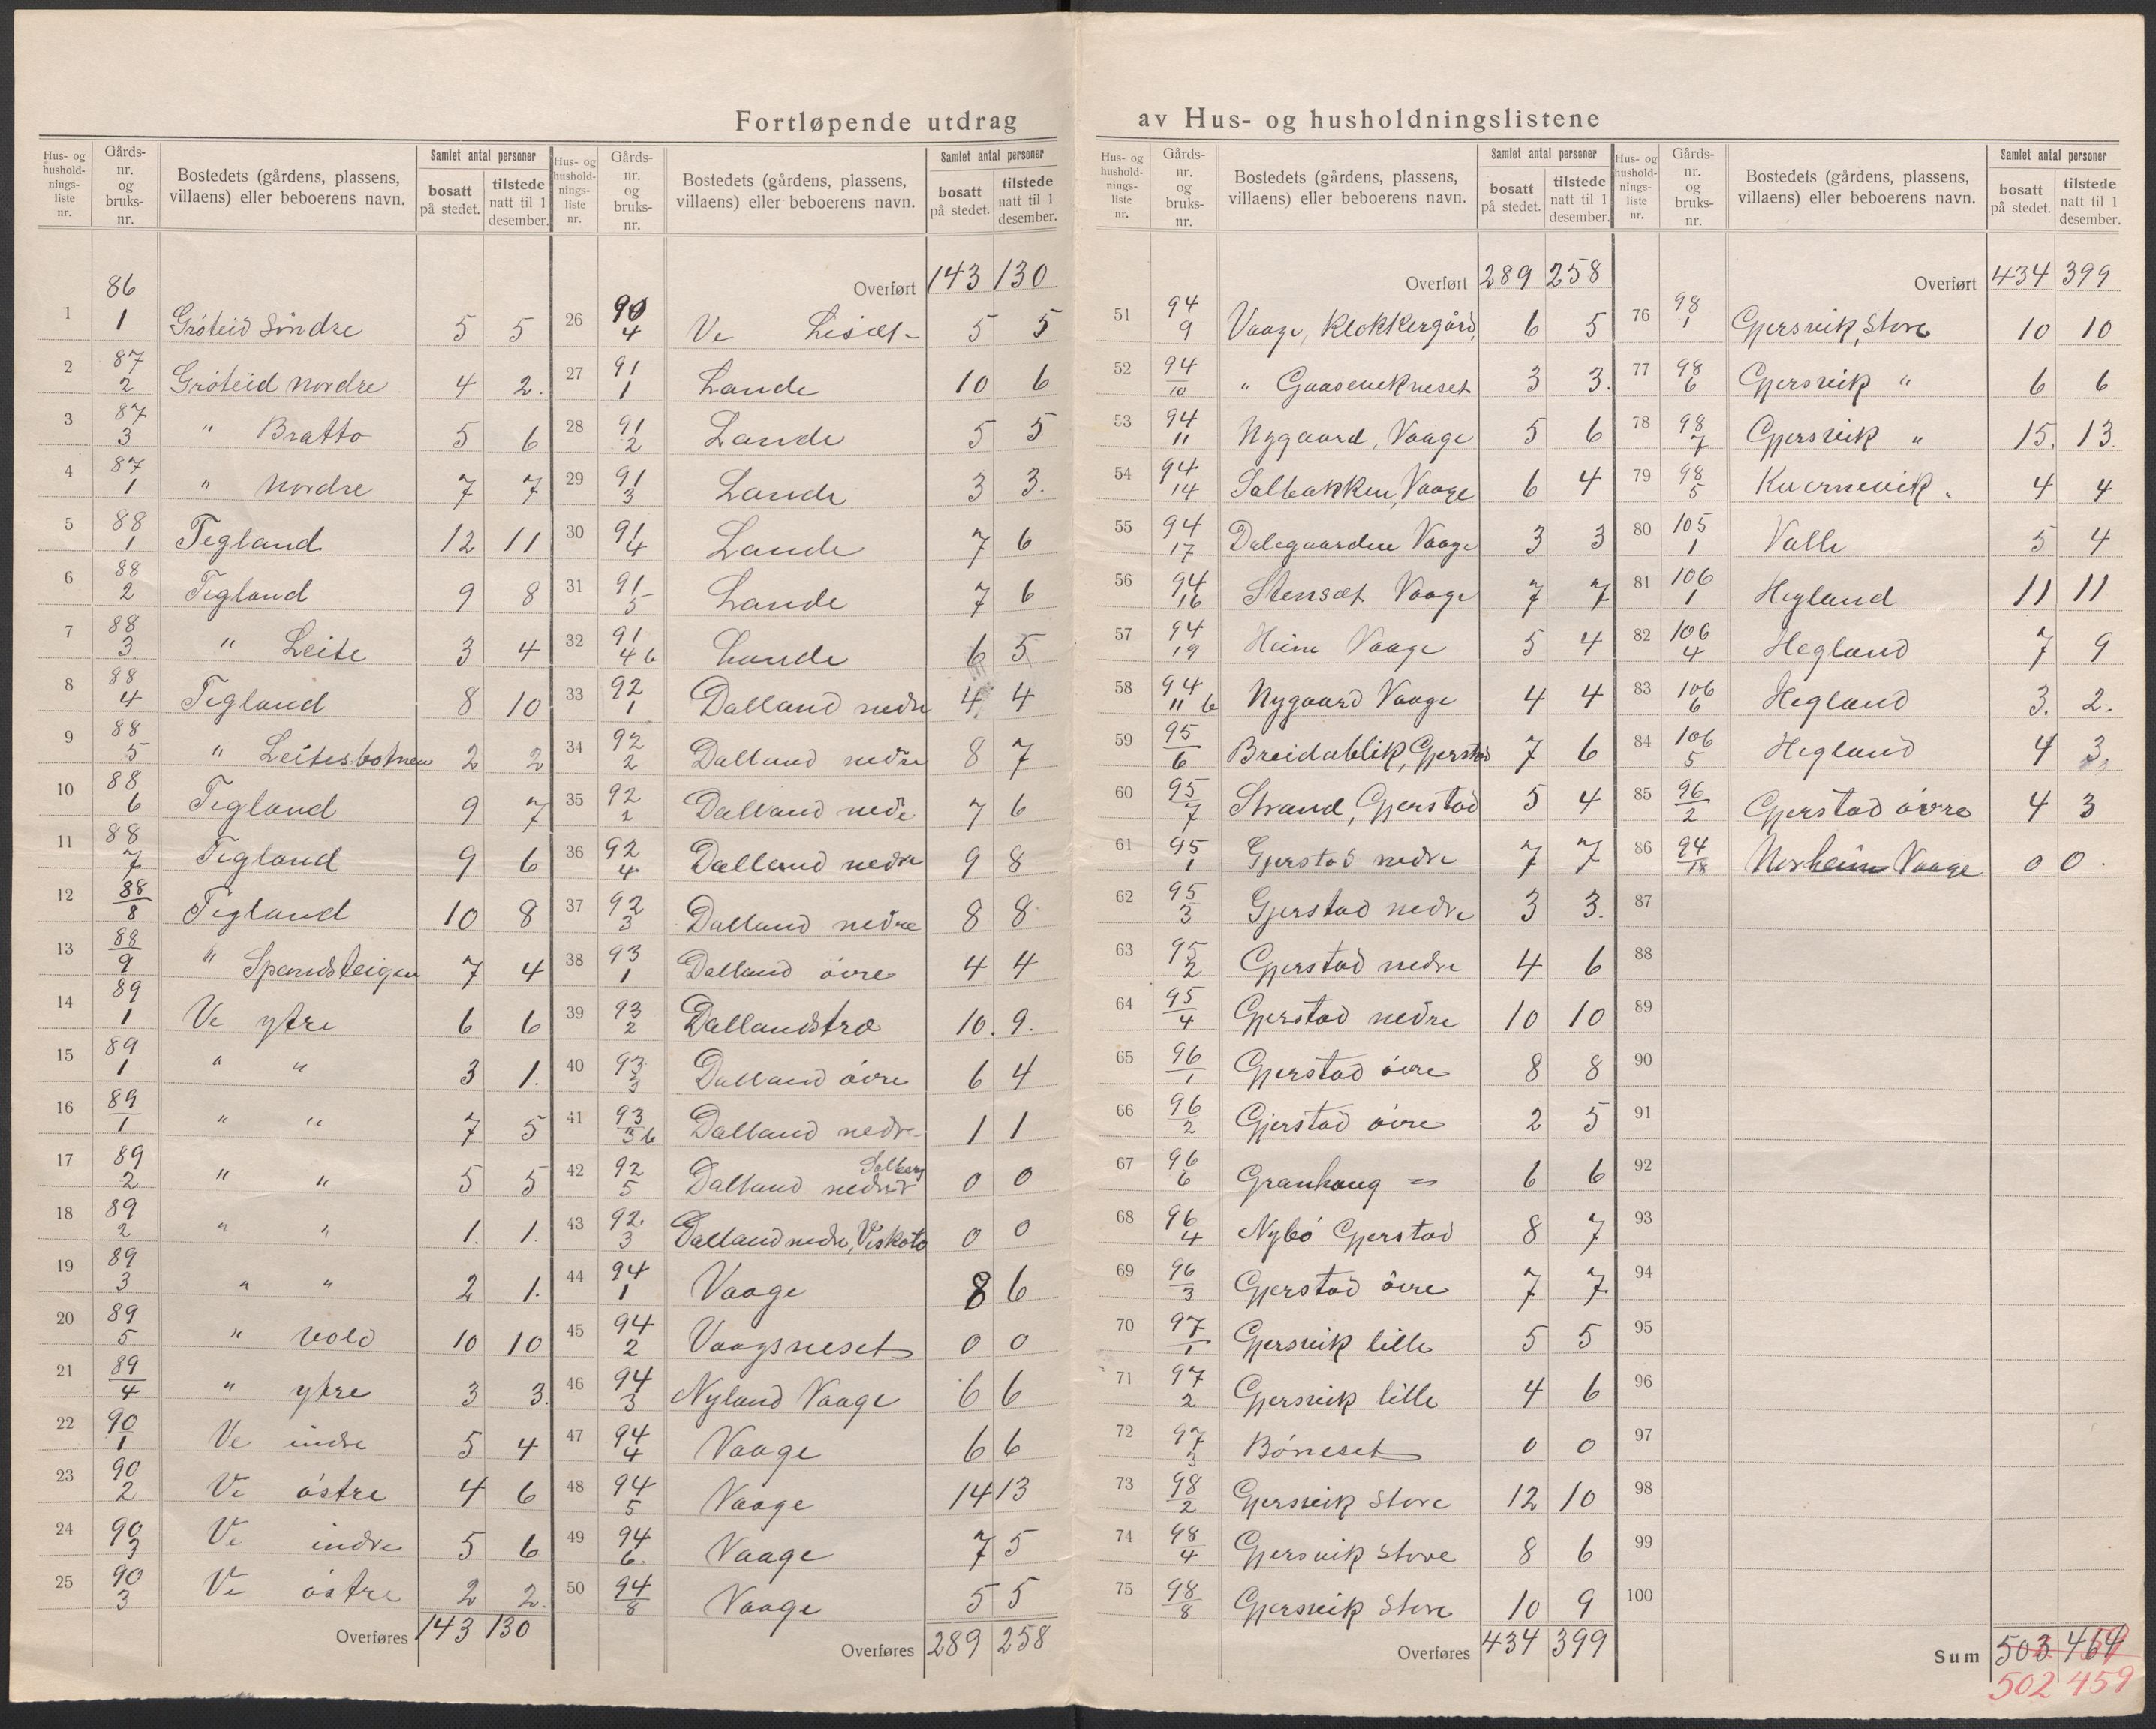 Fortløpende utdrag av Hus- og husholdningslistene
Hus- og hushold-nings-liste nr. Gårds-nr. og bruks-nr. Bostedets (gårdens, plassens, villaens) eller beboerens navn. Samlet antal personer bosatt på stedet. tilstede natt til 1 desember.
1 86 1 Gröteid Söndre 5 5
2 87 2 Gröteid nordre 4 2.
3 87 3 " Bratto 5 6
4 87 1 " nordre 7 7
5 88 1 Tegland 12 11
6 88 2 Tegland 9 8
7 88 3 " Leite 3 4
8 88 4 Tegland 8 10
9 88 5 " Leitesbotnen 2 2
10 88 6 Tegland 9 7
11 88 7 Tegland 9 6
12 88 8 Tegland 10 8
13 88 9 " Spandsteigen 7 4
14 89 1 Ve ytre 6 6
15 89 1 " " 3 1.
16 89 1 " " 7 5
17 89 2 " " 5 5
18 89 2 " " 1. 1.
19 89 3 " " 2 1.
20 89 5 " vold 10 10
21 89 4 " ytre 3 3.
22 90 1 Ve indre 5 4
23 90 2 Ve östre 4 6
24 90 3 Ve indre 5 6
25 90 3 Ve östre 2 2.
Overføres 143 130
Hus- og hushold-nings-liste nr. Gårds-nr. og bruks-nr. Bostedets (gårdens, plassens, villaens) eller beboerens navn. Samlet antal personer bosatt på stedet. tilstede natt til 1 desember.
Overført 143 130
26 90 4 Ve Lisæt 5 5
27 91 1 Lande 10 6
28 91 2 Lande 5 5
29 91 3 Lande 3 3.
30 91 4 Lande 7 6
31 91 5 Lande 7 6
32 91 4 b Lande 6 5
33 92 1 Dalland nedre 4 4
34 92 2 Dalland nedre 8 7
35 92 2 Dalland nedre 7 6
36 92 4 Dalland nedre 9 8
37 92 3 Dalland nedre 8 8
38 93 1 Dalland övre 4 4
39 93 2 Dallandstræ 10. 9.
40 93 3 Dalland övre 6 4
41 93 3 b Dalland nedre 1 1
42 92 5 Dalland nedre Solberg 0 0
43 92 3 Dalland nedre, Veskoto 0 0
44 94 1 Vaage 8 6
45 94 2 Vaagsneset 0 0
46 94 3 Nyland Vaage 6 6
47 94 4 Vaage 6 6
48 94 5 Vaage 14 13
49 94 6. Vaage 7 5
50 94 8 Vaage 5 5
Overføres 289 258
Hus- og hushold-nings-liste nr. Gårds-nr. og bruks-nr. Bostedets (gårdens, plassens, villaens) eller beboerens navn. Samlet antal personer bosatt på stedet. tilstede natt til 1 desember.
Overført 289 258
51 94 9 Vaage, Klokkergård, 6 5
52 94 10 " Gaaseneknæset 3 3.
53 94 11 Nygaard, Vaage 5 6
54 94 14 Solbakken, Vaage 6 4
55 94 17 Dalegaarden Vaage 3 3
56 94 16 Stensæt Vaage 7 7
57 94 19 Heim Vaage 5 4
58 94 11 b Nygaard Vaage 4 4
59 95 6 Breidablik, Gjerstad 7 6
60 95 7 Strand, Gjerstad 5 4
61 95 1 Gjerstad nedre 7 7
62 95 3 Gjerstad nedre 3 3.
63 95 2 Gjerstad nedre 4 6
64 95 4 Gjerstad nedre 10 10
65 96 1 Gjerstad övre 8 8
66 96 2 Gjerstad övre 2 5
67 96 6 Granhaug = 6 6
68 96 4 Nybö Gjerstad 8 7
69 96 3 Gjerstad övre 7 7
70 97 1 Gjersvik lille 5 5
71 97 2 Gjersvik lille 4 6
72 97 3 Böneset 0 0
73 98 2 Gjersvik store 12 10
74 98 4 Gjersvik store 8 6
75 98 8 Gjersvik store 10 9
Overføres 434 399
Hus- og hushold-nings-liste nr. Gårds-nr. og bruks-nr. Bostedets (gårdens, plassens, villaens) eller beboerens navn. Samlet antal personer bosatt på stedet. tilstede natt til 1 desember.
Overført 434 399
76 98 1 Gjersvik, Store 10 10
77 98 6 Gjersvik " 6 6
78 98 7 Gjersvik " 15. 13.
79 98 5 Kvernevik " 4 4
80 105 1 Valle 5 4
81 106 1 Hegland 11 11
82 106 4 Hegland 7 9
83 106 6 Hegland 3. 2.
84 106 5 Hegland 4 3.
85 96 2 Gjerstad övre 4 3
86 94 18 Norheim Vaage 0 0.
87
88
89
90
91
92
93
94
95
96
97
98
99
100
Sum 503 464
502 459